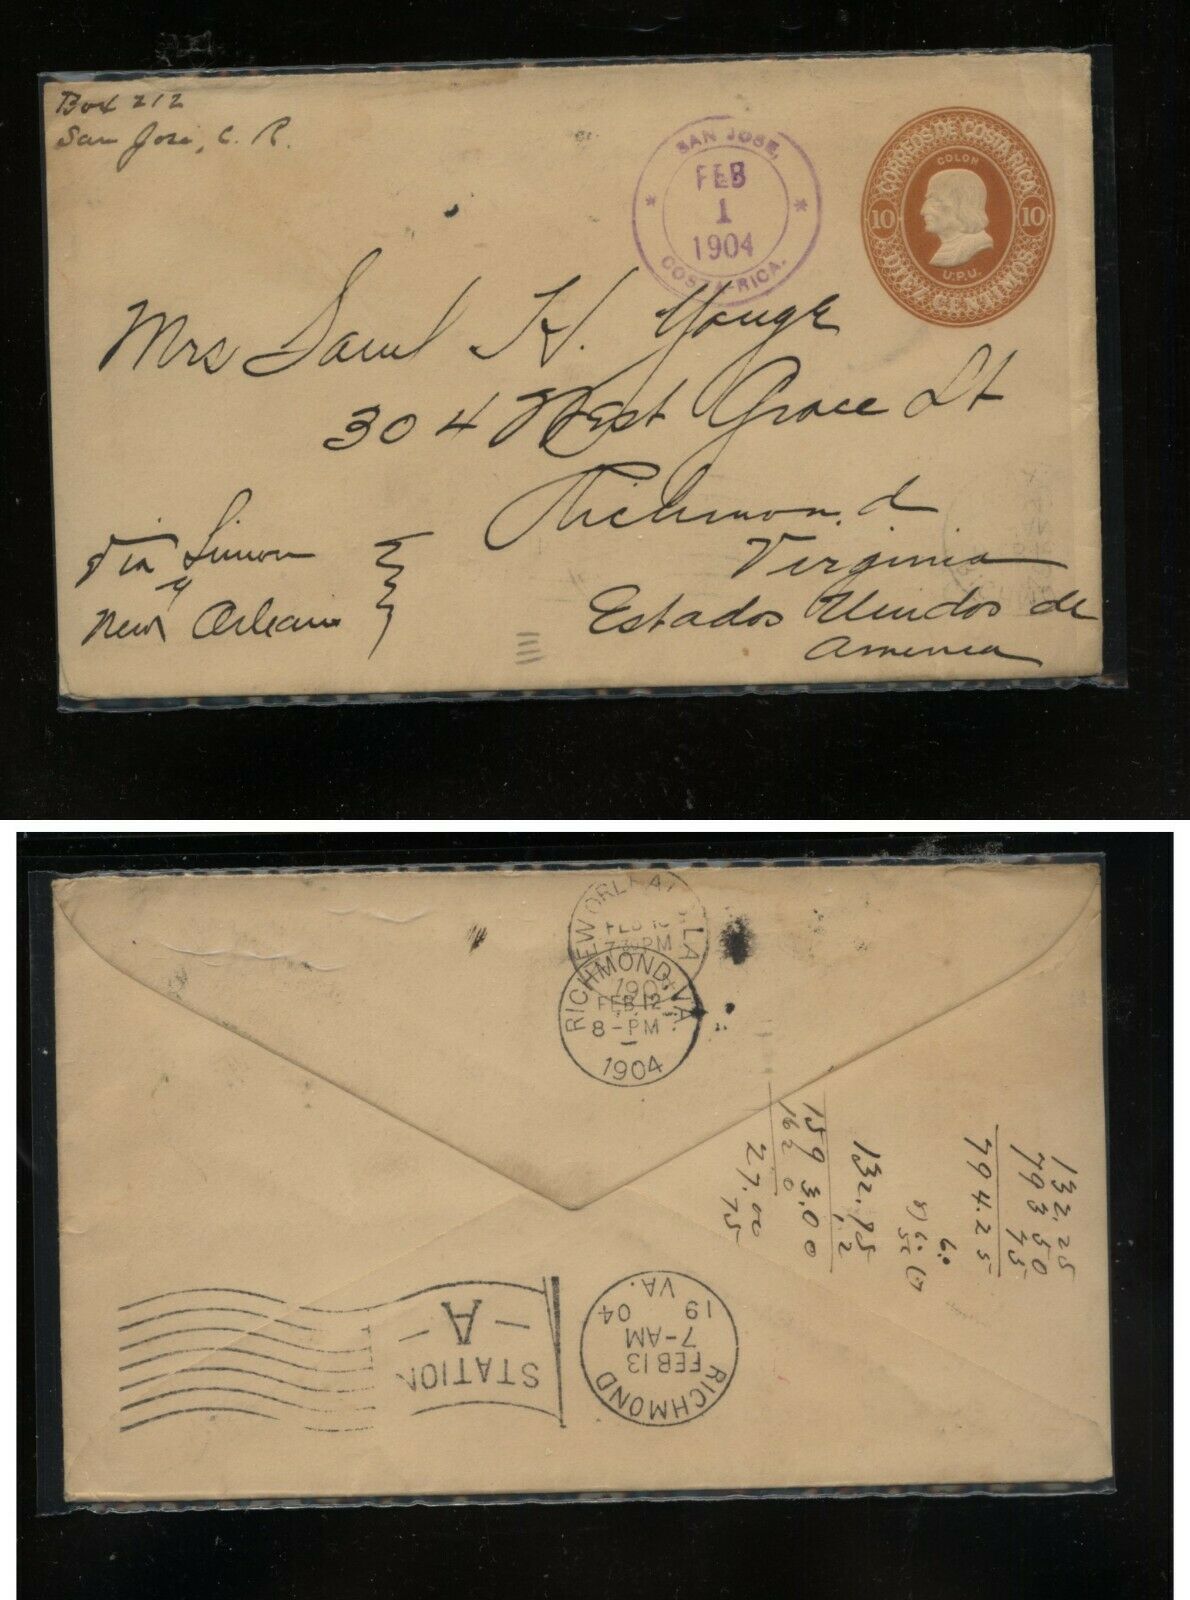 Box 212
San Jose, C. R.
SAN JOSE,
FEB
1
1904
COSTA RICA.
CORREOS DE COSTA RICA
COLON
10 10
U.P.U.
DIEZ CENTIMOS
Mrs Saml H. Yonge
304 West Grace St
Richmond
Virginia
Estados Unidos de
America
Via Limon
y
New Orleans
NEW ORLEANS LA
FEB
7 PM
190
RICHMOND, VA.
FEB 12
8-PM
1904
132.25
793 50
75
794.25
132.75
1.2
159 3.00
162 0
27.00
75
RICHMOND
FEB 13
7-AM
19 04
VA.
STATION
-A-